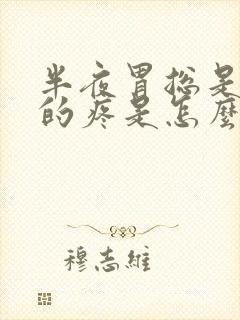 半夜胃总是
的疼是怎麼
穆志維